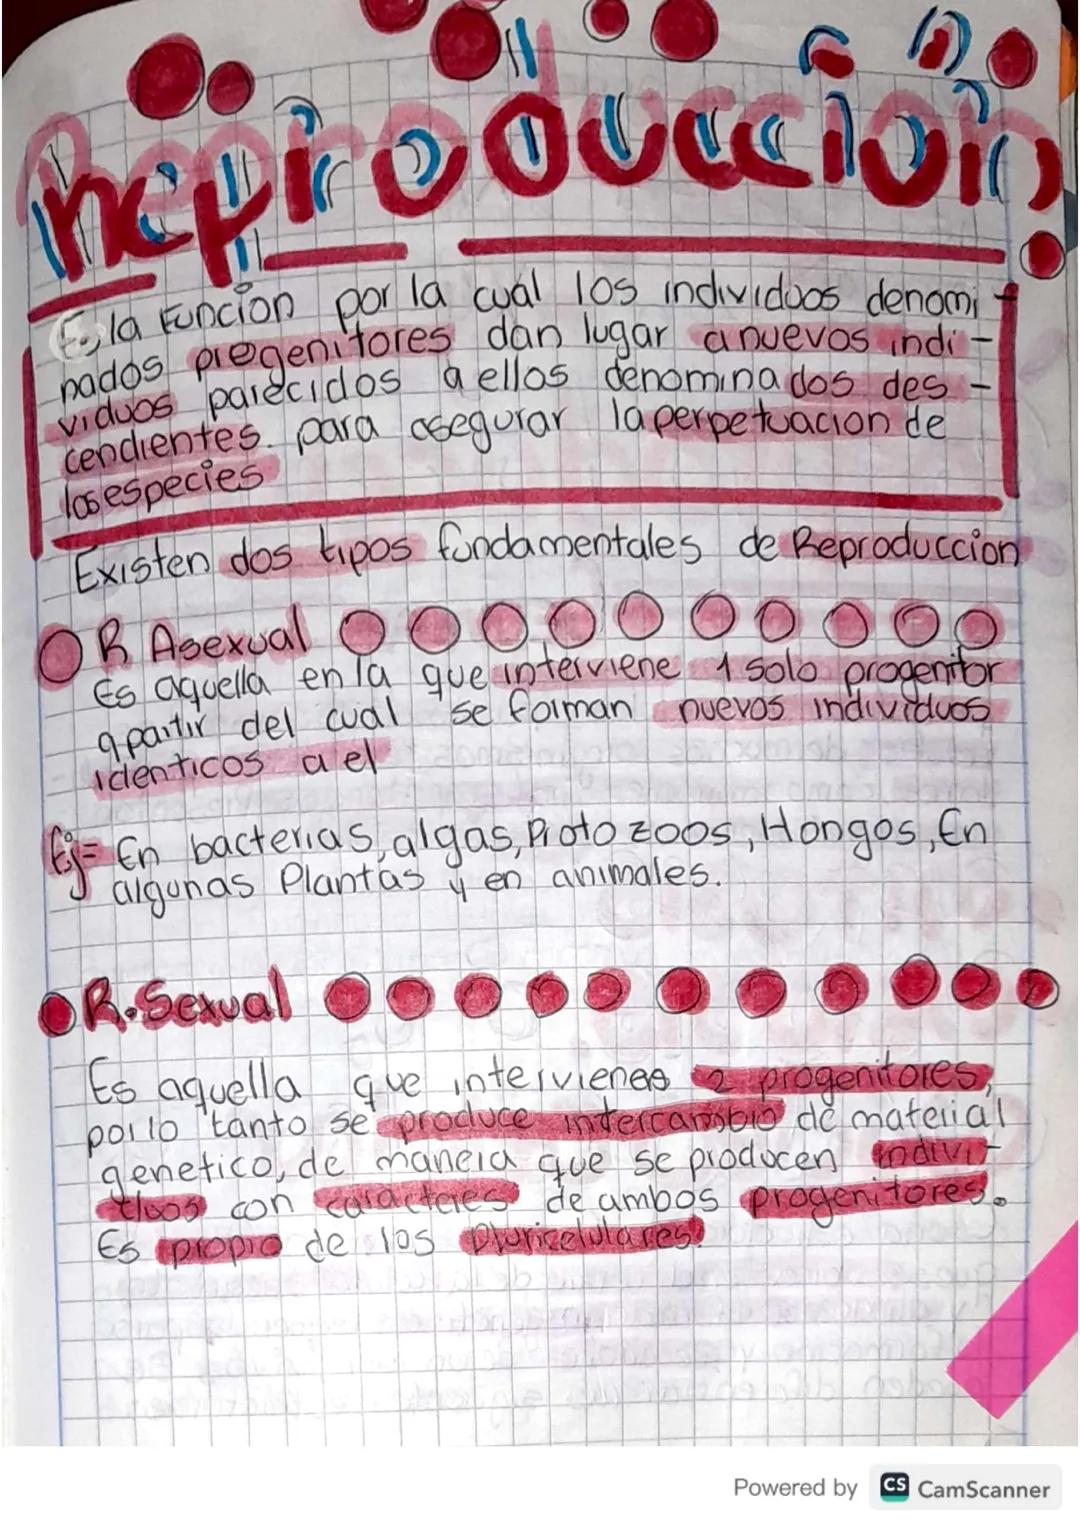 Reproduccion
Es la Funcion por la cual los individuos denomi -
nados progenitores dan lugar a nuevos indi -
viduos parecidos a ellos denominados des -
cendientes. para asegurar la perpetuacion de
las especies
Existen dos tipos fundamentales de Reproduccion
R Asexual
Es aquella en la que interviene 1 solo progenitor
apartir del cual se forman nuevos individuos
identicos a el
Ej= En bacterias, algas, Protozoos, Hongos, En
algunas Plantas y en animales.
R. Sexual
Es aquella que intervienes 2 progenitores,
por lo tanto se produce intercambio de material
genetico, de manera que se producen indivi-
duos con caracteres de ambos progenitores.
Es propio de los Pluricelulares.
Powered by CS CamScanner